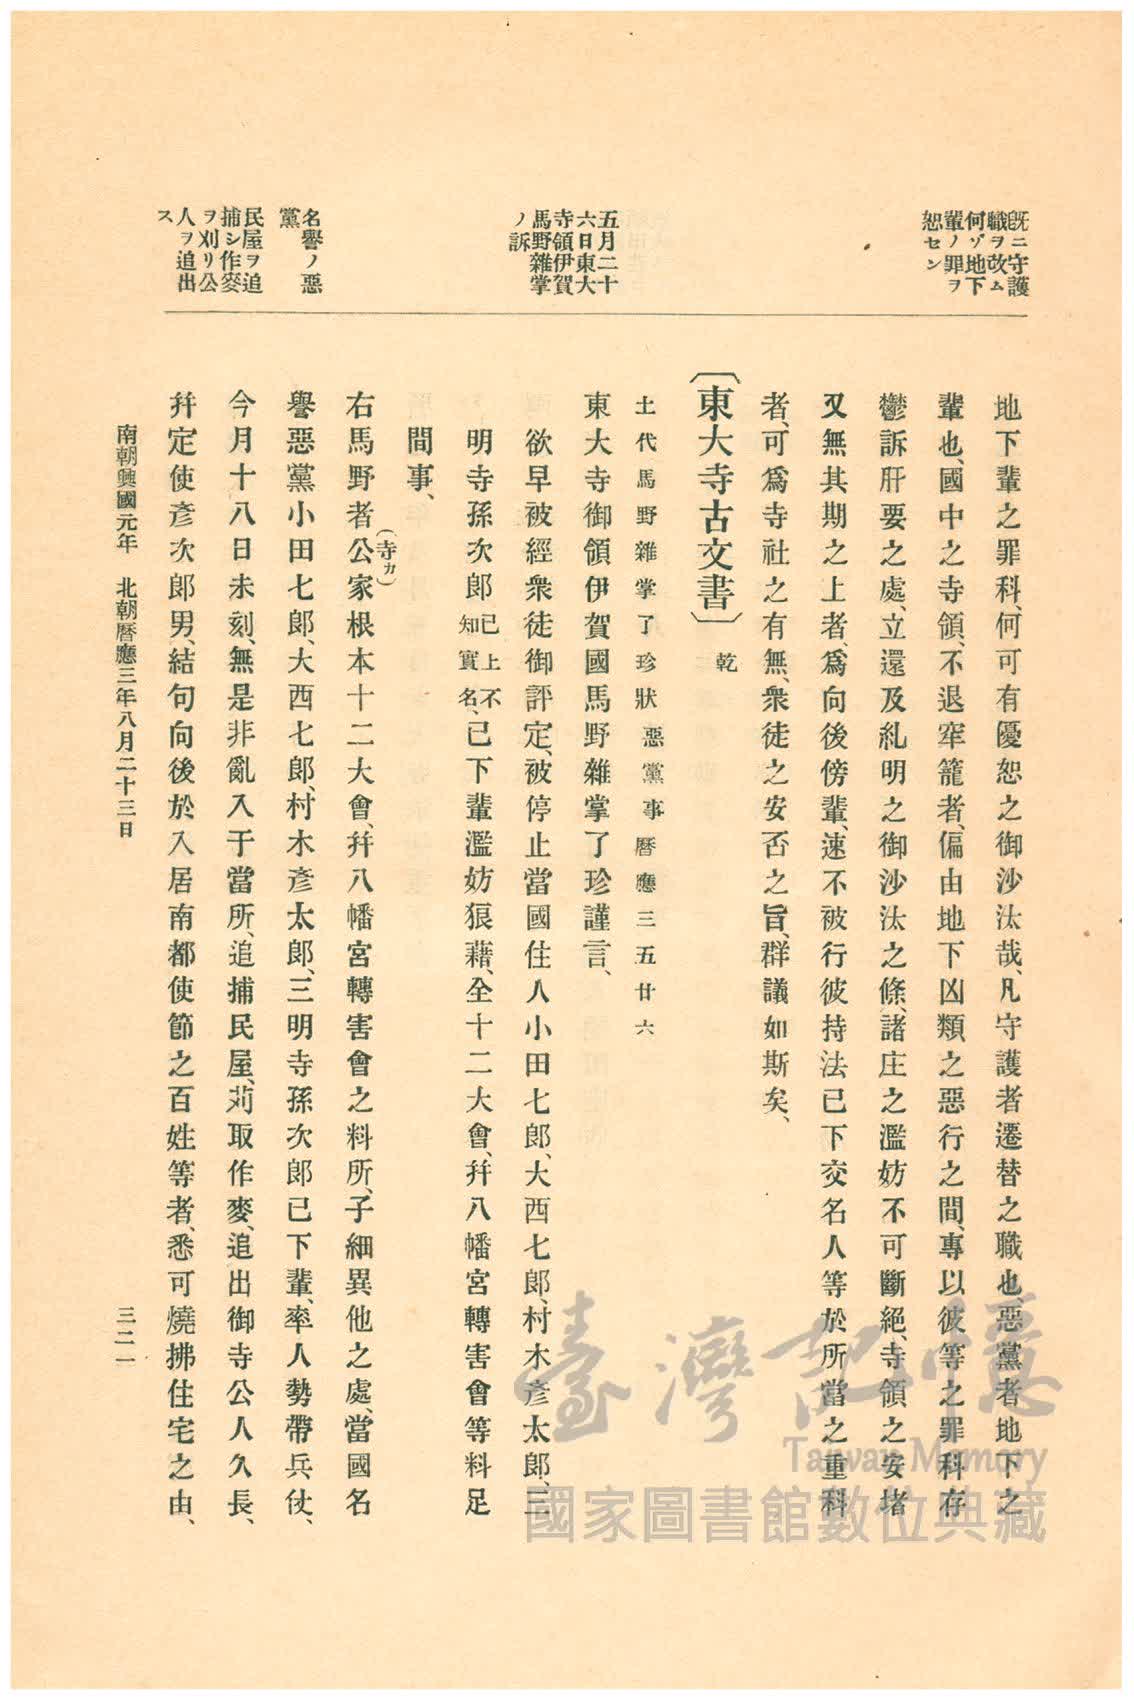 既ニ守護
職ヲ改ム
何ゾ地下
輩ノ罪ヲ
恕セン
五月二十
六日東大
寺領伊賀
馬野雜掌
ノ訴
名譽ノ惡
黨
民屋ヲ追
捕シ作麥
ヲ刈リ公
人ヲ追出
ス
地下輩之罪科、何可有優恕之御沙汰哉、凡守護者遷替之職也、惡黨者地下之
輩也、國中之寺領、不退窂籠者、偏由地下凶類之惡行之間、專以彼等之罪科存
鬱訴肝要之處、立還及糺明之御沙汰之條、諸庄之濫妨不可斷絕、寺領之安堵
又無其期之上者、爲向後傍輩、速不被行彼持法已下交名人等於所當之重科
者、可爲寺社之有無、衆徒之安否之旨、群議如斯矣、
〔東大寺古文書〕乾
土代馬野雜掌了珍狀 惡黨事曆應三五廿六
東大寺御領伊賀國馬野雜掌了珍謹言、
欲早被經衆徒御評定、被停止當國住人小田七郎、大西七郎、村木彥太郎、三
明寺孫次郎已上不知實名、已下輩濫妨狼藉、全十二大會、幷八幡宮轉害會等料足
間事、
右馬野者公(寺カ)家根本十二大會、幷八幡宮轉害會之料所、子細異他之處、當國名
譽惡黨小田七郎、大西七郎、村木彥太郎、三明寺孫次郎已下輩、率人勢帶兵仗、
今月十八日未刻、無是非亂入于當所、追捕民屋、苅取作麥、追出御寺公人久長、
幷定使彥次郎男、結句向後於入居南都使節之百姓等者、悉可燒拂住宅之由、
南朝興國元年 北朝曆應三年八月二十三日
三二一
臺灣記憶
Taiwan Memory
國家圖書館數位典藏